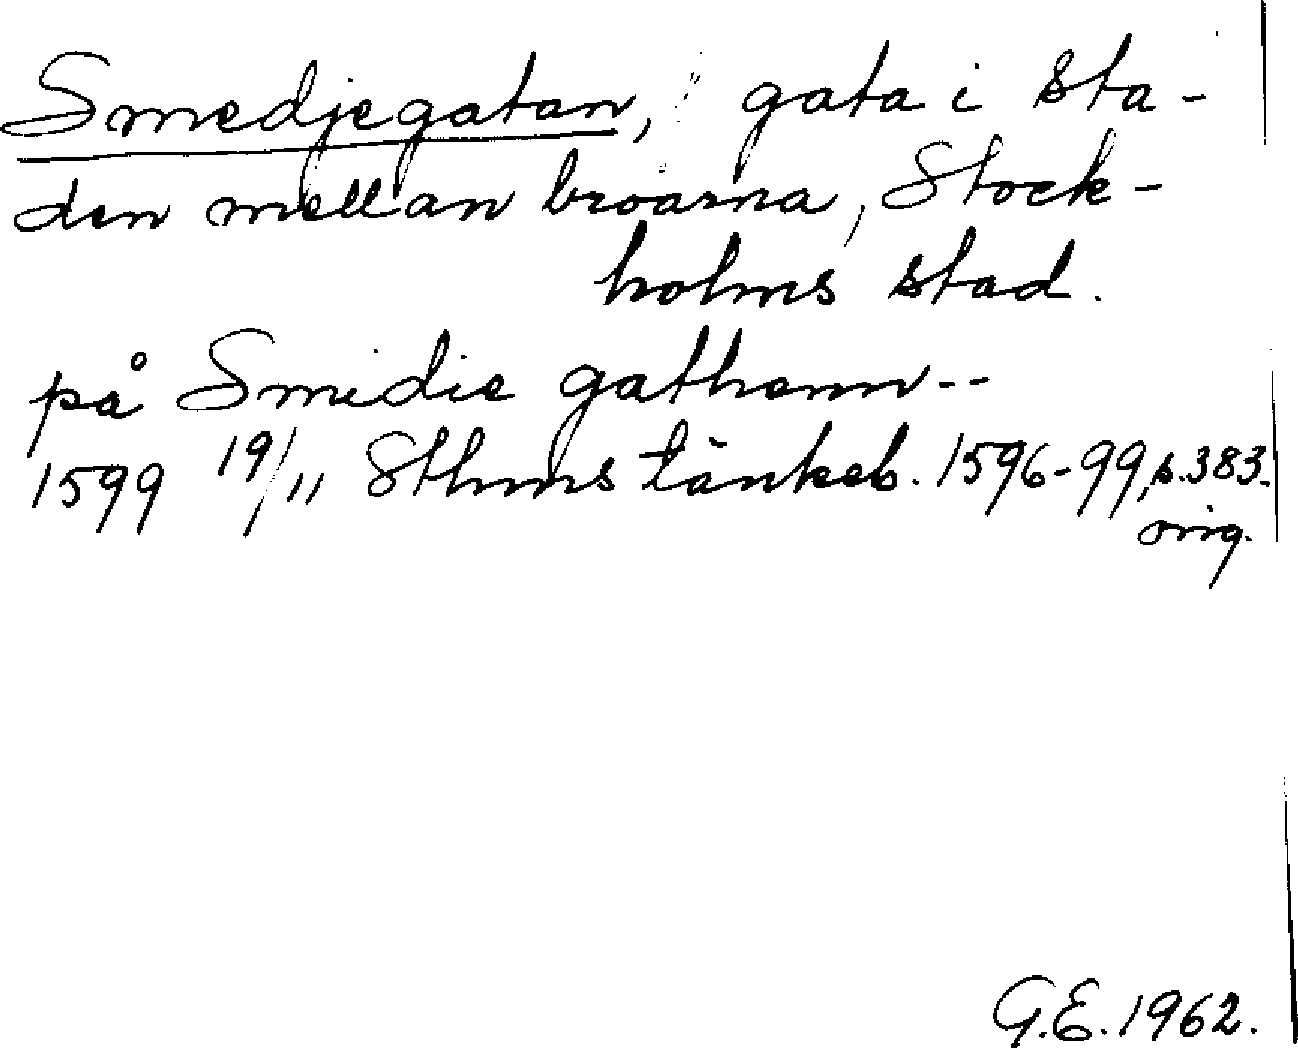 Smedjegatan, gata i sta-
den mellan broarna, Stock-
holms stad.
på Smidie gathenn--
1599 19/11 Sthms tänkeb. 1596-99, s. 383.
orig.
G.E. 1962.